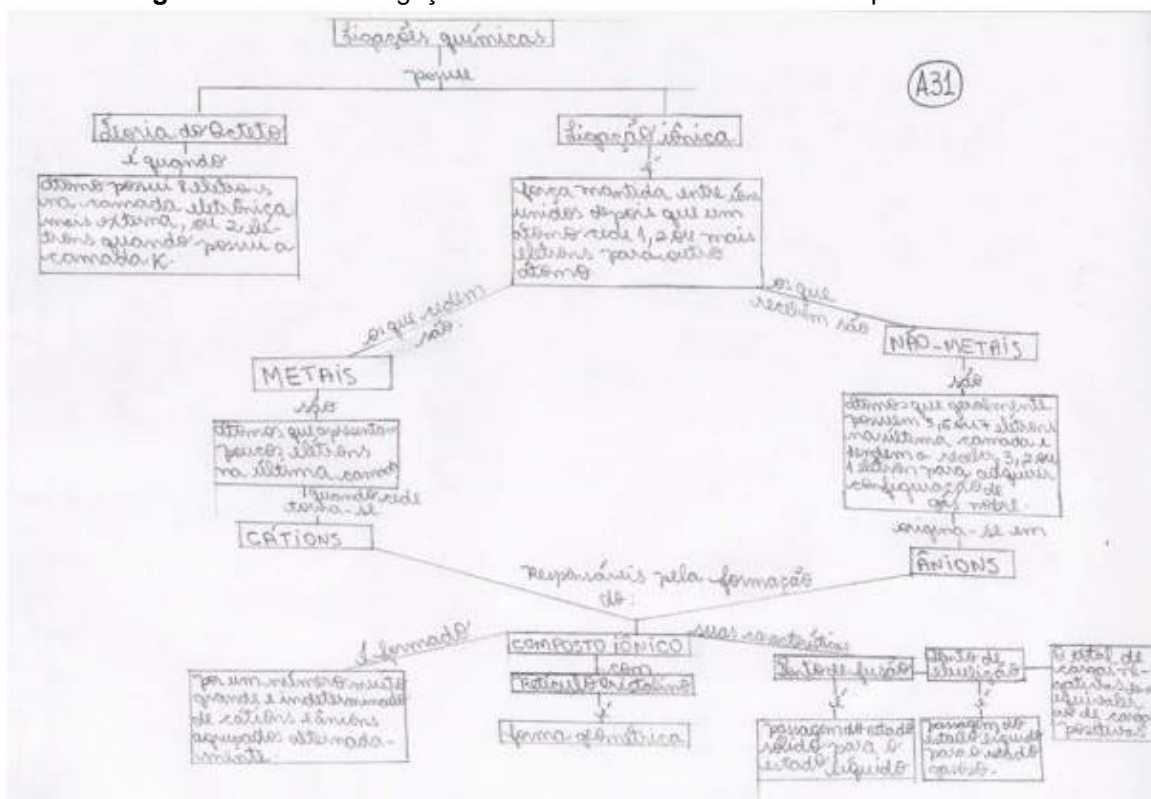 Ligações químicas
possue
A31
Teoria do Octeto
é quando
átomo possui 8 elétrons
na camada eletrônica
mais externa, ou 2 elé-
trons quando possui a
camada K.
Ligação iônica
é
força mantida entre íons
unidos depois que um
átomo cede 1, 2 ou mais
elétrons para outro
átomo
os que cedem
são:
METAIS
são
átomos que apresentam
poucos elétrons
na última camada
quando cede
torna-se
CÁTIONS
os que
recebem são
NÃO-METAIS
são
átomos que geralmente
possuem 5, 6 ou 7 elétrons
na última camada e
tendem a receber 3, 2 ou
1 elétron para adquirir
configuração de
gás nobre.
origina-se em
ÂNIONS
Responsáveis pela formação
do:
COMPOSTO IÔNICO
é formado
por um número muito
grande e indeterminado
de cátions e ânions
agrupados alternada-
mente.
com
Retículo Cristalino
é
forma geométrica
suas características
Ponto de fusão
é
passagem do estado
sólido para o
estado líquido
Ponto de
ebulição
é
passagem do
estado líquido
para o estado
gasoso.
O total de
cargas ne-
gativas
equivaler
ao de cargas
positivas